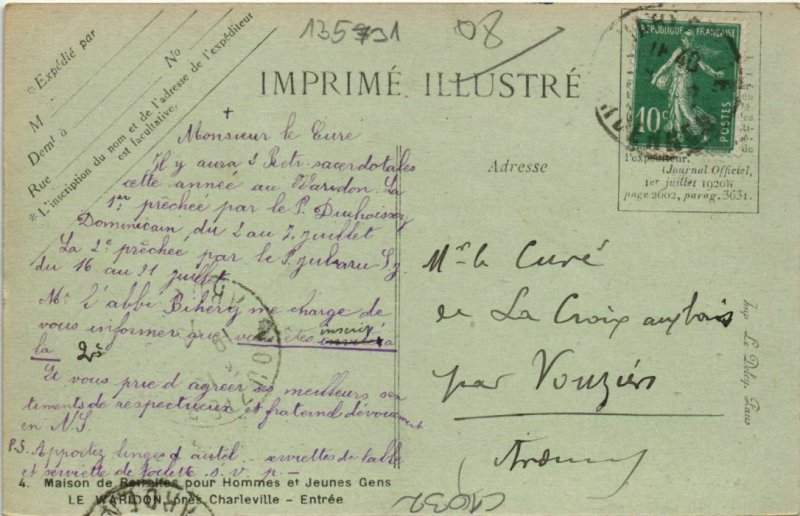 135731
08
IMPRIMÉ ILLUSTRÉ
* Expédié par
M No
Demt à
Rue
* L'inscription du nom et de l'adresse de l'expéditeur
est facultative.
RÉPUBLIQUE FRANÇAISE
10c
POSTES
l'expéditeur.
(Journal Officiel,
1er juillet 1920
page 2602, parag. 3631.
+
Monsieur le Curé
Il y aura 2 Retr. sacerdotales
cette année au Waridon La
1re prêchée par le P.
Dominicain, du 2 au 7 juillet
La 2e prêchée par le P. Jubaru S.J.
du 16 au 21 juillet
Mr l'abbé Bihéry me charge de
vous informer que vous êtes inscrit à
la 2e
Et vous prie d'agréer ses meilleurs sen
timents de respectueux et fraternel dévouement
en N.S.
P.S. Apportez linges d'autel - serviettes de table
et serviette de toilette s. v. p. -
Adresse
Mr le Curé
de La Croix aux bois
par Vouziers
Ardennes
Imp. Le Deley, Paris
4. Maison de Retraites pour Hommes et Jeunes Gens
LE WARIDON, près Charleville - Entrée